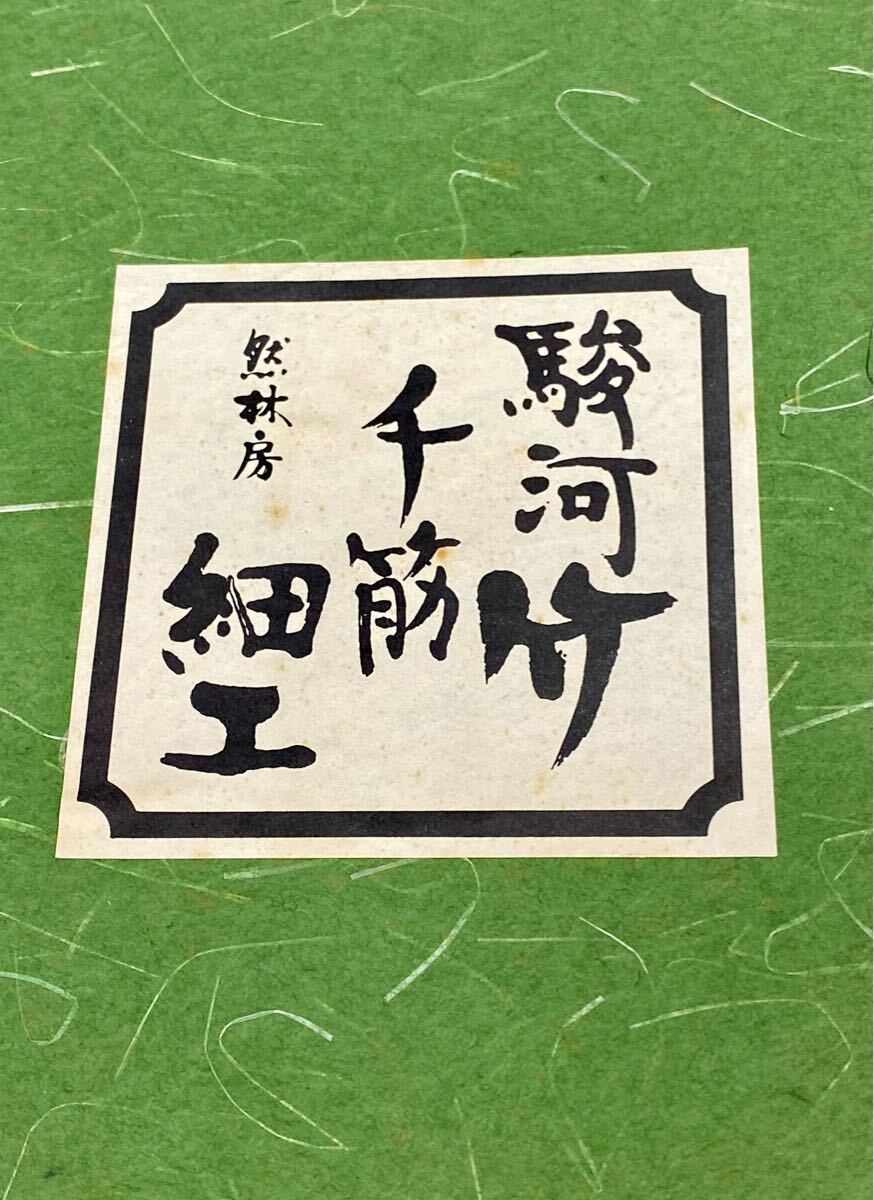 駿河竹
千筋
細工
然林房